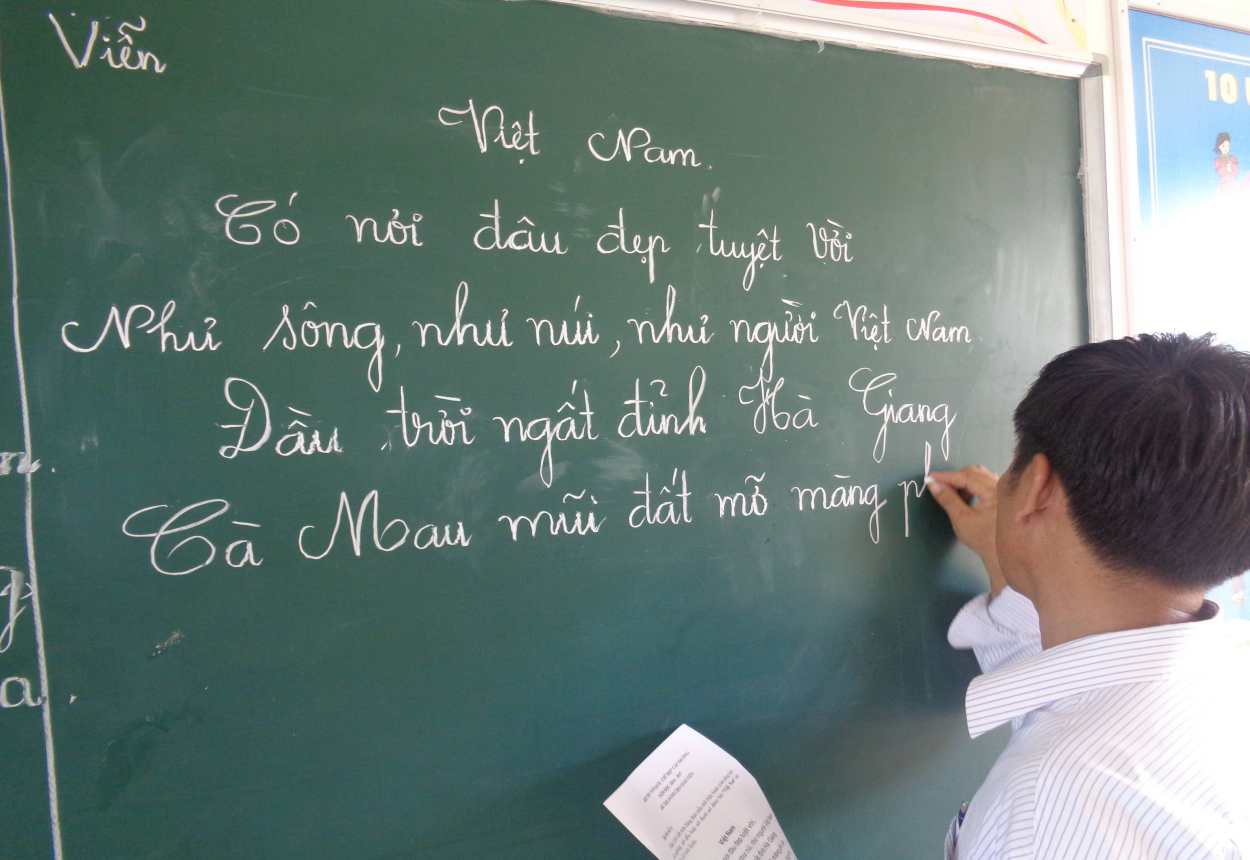 Viễn
Việt Nam.
Có nơi đâu đẹp tuyệt vời
Như sông, như núi, như người Việt Nam
Đầu trời ngất đỉnh Hà Giang
Cà Mau mũi đất mỡ màng ph
a.
10
Việt Nam